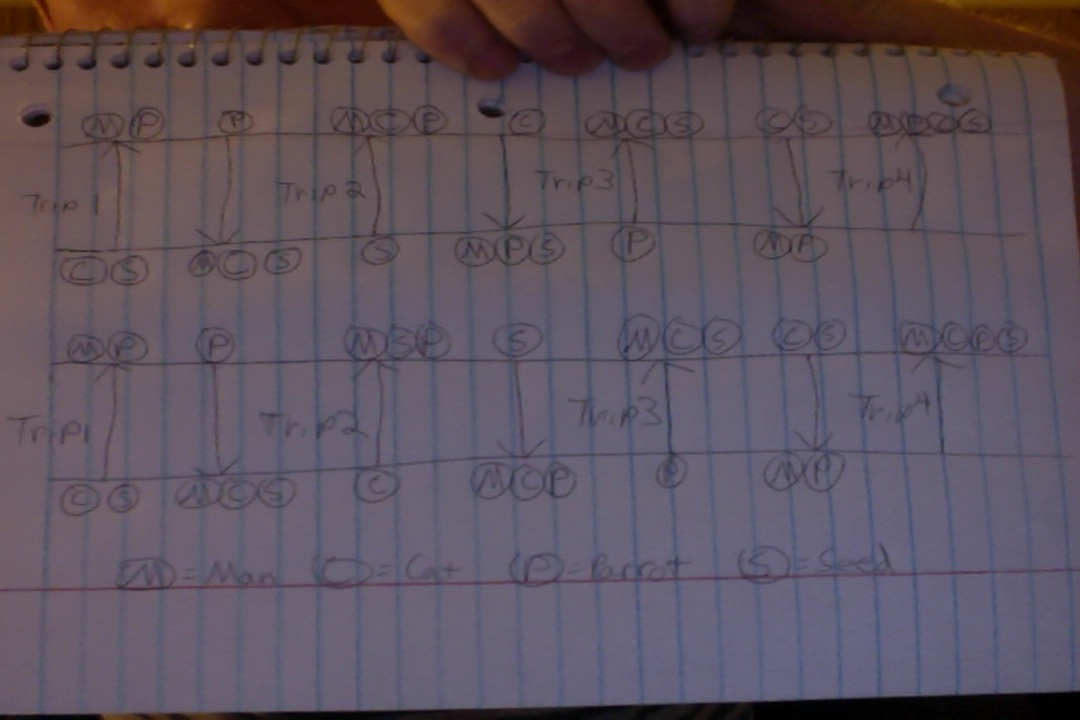 M P P M C P C M C S C S M P C S
Trip 1 Trip 2 Trip 3 Trip 4
C S C S S M P S P M P
M P P M S P S M C S C S M C P S
Trip 1 Trip 2 Trip 3 Trip 4
C S M C S C M C P P M P
M = Man C = Cat P = Parrot S = Seed